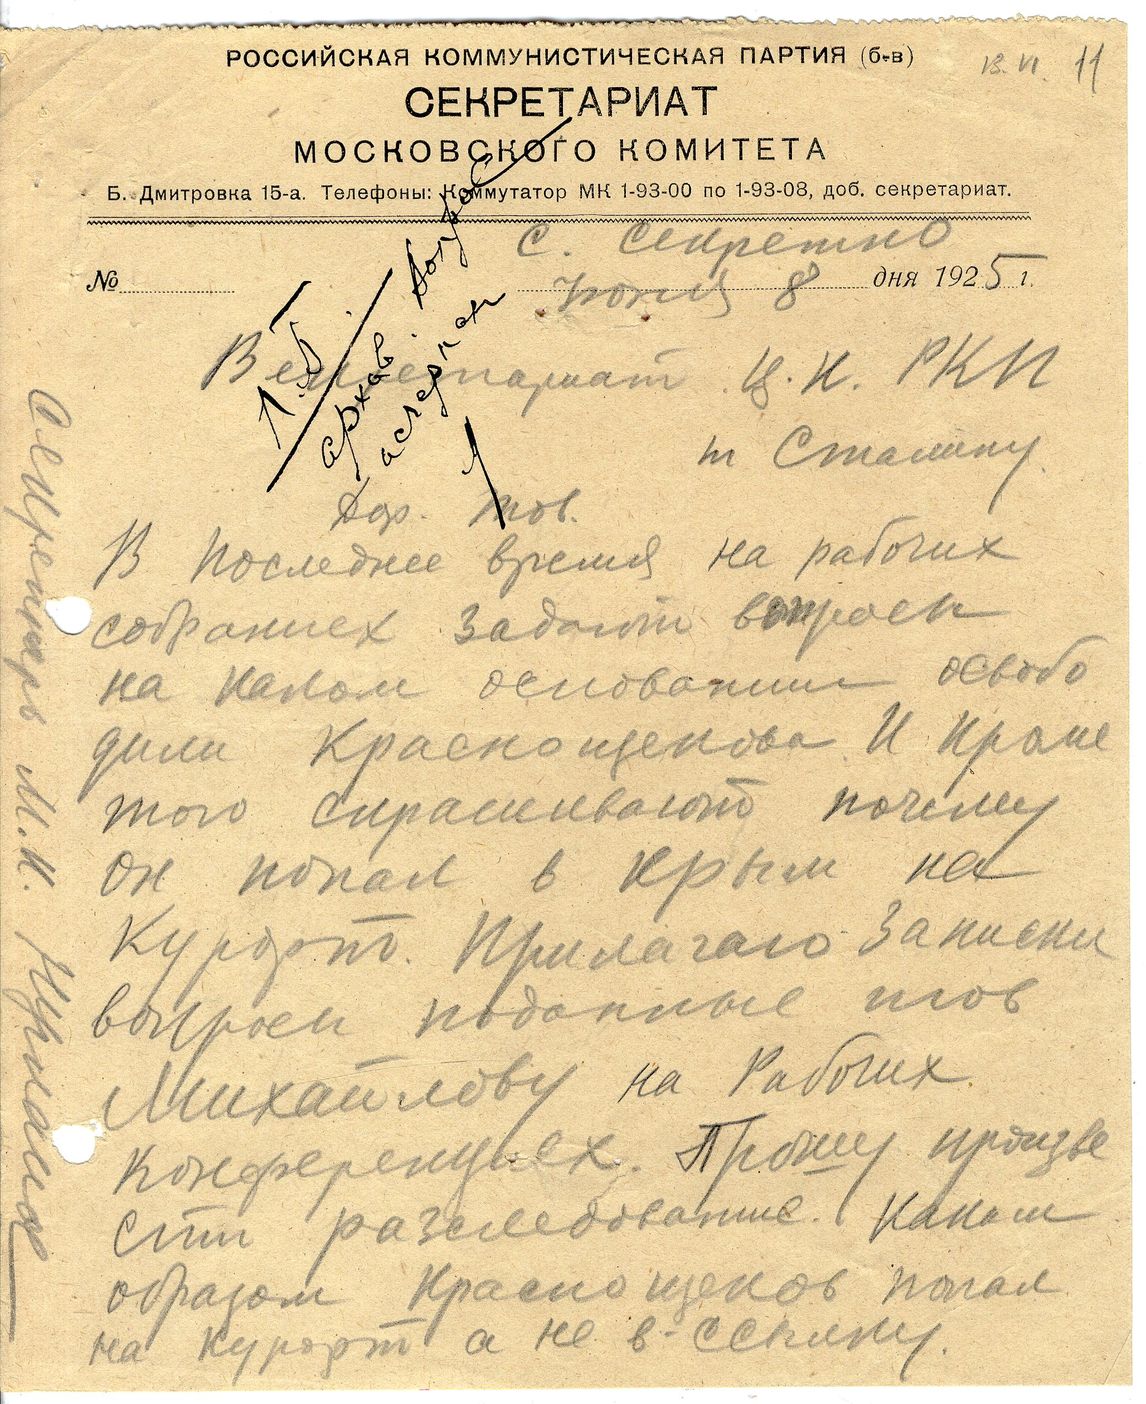 РОССИЙСКАЯ КОММУНИСТИЧЕСКАЯ ПАРТИЯ (б-в)
13.VI. 11
СЕКРЕТАРИАТ
МОСКОВСКОГО КОМИТЕТА
Б. Дмитровка 15-а. Телефоны: Коммутатор МК 1-93-00 по 1-93-08, доб. секретариат.
С. Секретно
№ Июня 8 дня 1925 г.
архив. Вопрос
исчерпан
В Ц.К. РКП
т Сталину.
Дор. тов.
В последнее время на рабочих
собраниех задают вопросы
на каком основании освобо
дили Краснощекова И кроме
того спрашивают почему
он попал в Крым на
Курорт. Прилагаю Записки
вопросы поданные тов
Михайлову на Рабочих
Конференциех. Прошу произве
сти разследование. Каким
образом Краснощеков попал
на курорт а не в-ссылку.
Секретарь М.К.